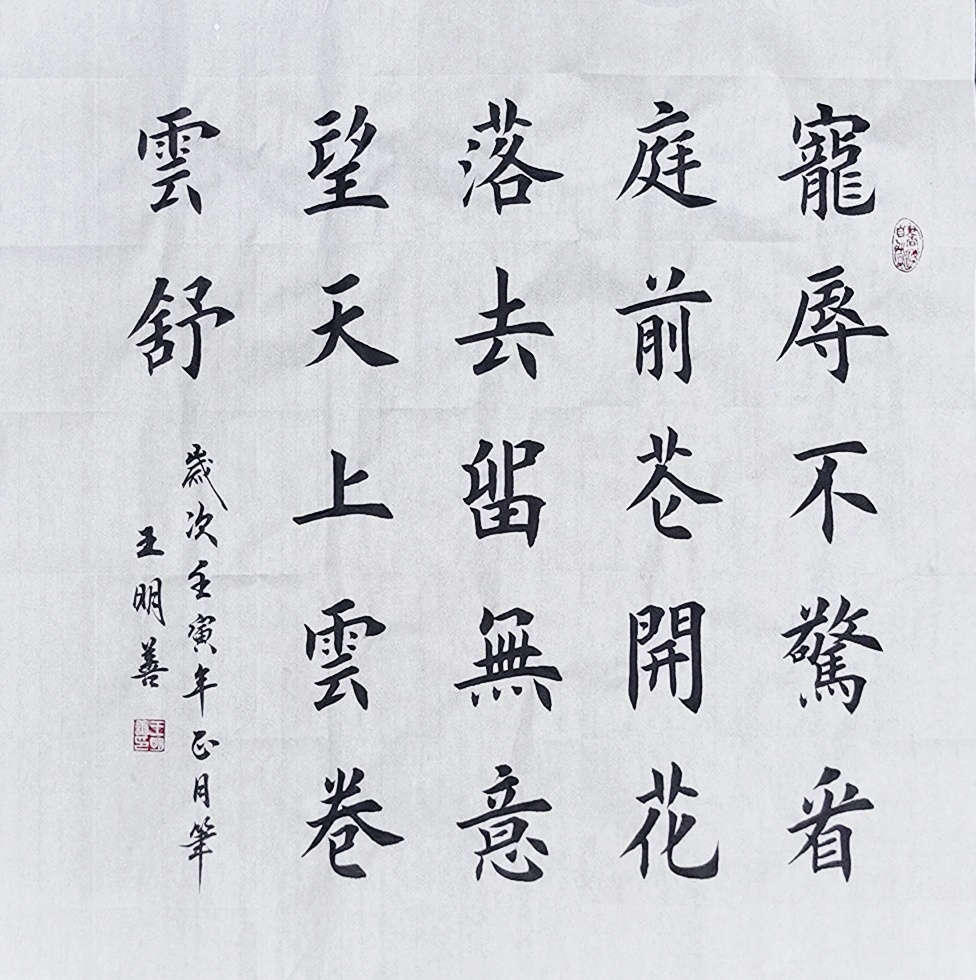 寵辱不驚看
庭前芲開花
落去留無意
望天上雲卷
雲舒
歲次壬寅年正月筆
王明善